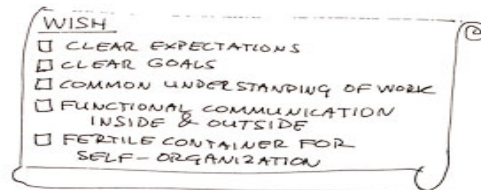 WISH
CLEAR EXPECTATIONS
CLEAR GOALS
COMMON UNDERSTANDING OF WORK
FUNCTIONAL COMMUNICATION
INSIDE & OUTSIDE
FERTILE CONTAINER FOR
SELF-ORGANIZATION